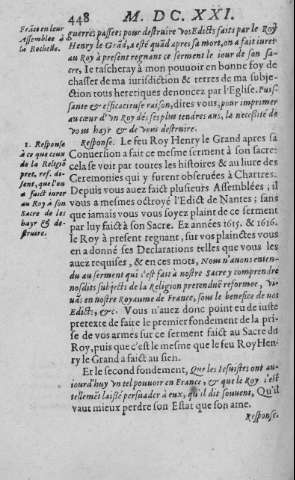 448 M. DC. XXI.
Frãce en leur
Assemblée à
la Rochelle.
guerres passees pour destruire vos Edicts faits par le Roy
Henry le Grãd, a esté quãd apres sa mort, on a fait iurer
au Roy à present regnant ce serment le iour de son sa-
cre, Ie tascheray à mon pouuoir en bonne foy de
chasser de ma iurisdiction & terres de ma subje-
ction tous heretiques denoncez par l'Eglise. Puis-
sante & efficatieuse raison, dites vous, pour imprimer
au cœur d'vn Roy dés ses plus tendres ans, la necessité de
vous hayr & de vous destruire.
1. Response
à ce que ceux
de la Religiõ
pret. ref. di-
sent, que l'on
a fait iurer
au Roy à son
Sacre de les
hayr & de-
struire.
Response. Le feu Roy Henry le Grand apres sa
Conuersion a fait ce mesme serment à son sacre:
cela se voit par toutes les histoires & au liure des
Ceremonies qui y furent obseruées à Chartres:
Depuis vous auez faict plusieurs Assemblées, il
vous a mesmes octroyé l'Edict de Nantes; sans
que iamais vous vous soyez plaint de ce serment
par luy faict à son Sacre. Ez années 1615. & 1616.
le Roy à present regnant, sur vos plainctes vous
en a donné ses Declarations telles que vous les
auez requises, & en ces mots, Nous n'auons enten-
du au serment qui s'est fait à nostre Sacre y comprendre
nosdits subjects de la Religion pretenduë reformee, vi-
uãs en nostre Royaume de France, sous le benefice de nos
Edicts, &c. Vous n'auez donc point eu de iuste
pretexte de faire le premier fondement de la pri-
se de vos armes sur ce serment faict au Sacre du
Roy, puis que c'est le mesme que le feu Roy Hen-
ry le Grand a faict au sien.
Et le second fondement, Que les Iesuistes ont au-
iourd'huy vn tel pouuoir en France, & que le Roy s'est
tellemẽt laissé persuader à eux, qu'il dit souuent, Qu'il
vaut mieux perdre son Estat que son ame.
Response.